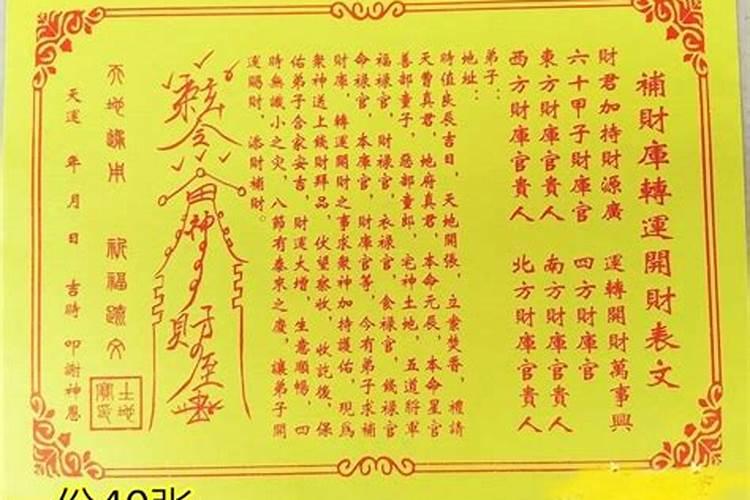 補財庫轉運開財表文
財君加持財源廣 運轉開財萬事興
六十甲子財庫官 四方財庫官
東方財庫官貴人 南方財庫官貴人
西方財庫官貴人 北方財庫官貴人
弟子：
地址：
時值良辰吉日，天地開張，立案焚香，禮請
天曹真君，地府真君，本命元辰，本命星官
善部童子，惡部童郎，宅神土地，五道將軍
福祿官，財祿官，衣祿官，食祿官，錢祿官
命祿官，本庫官，財庫官等，今有弟子求補
財庫，轉運開財之事求衆神加持護佑，現爲
衆神送上錢財拜品，伏望察收，收訖後，保
佑弟子合家安吉，財運大增，生意順暢，四
時無讖小之灾，八節有泰來之慶，讓弟子開
運賜財，添財補財。
天地 祝福 文
天運 年 月 日 吉時 叩謝神恩
土地
40张